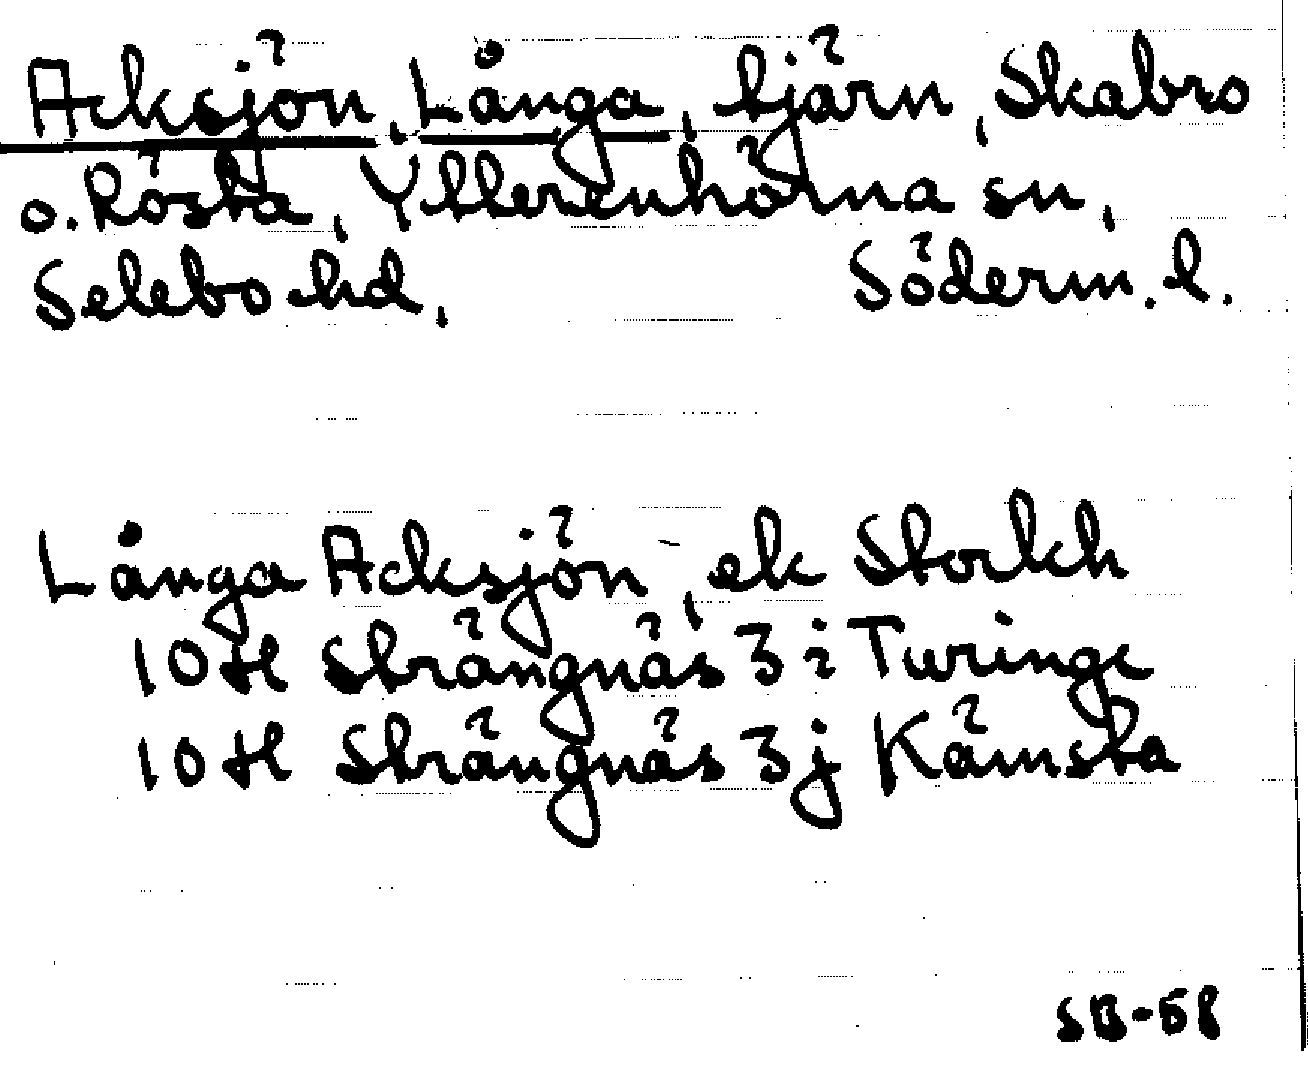 Acksjön, Långa, tjärn, Skabro
o. Rösta, Ytterenhörna sn,
Selebo hd, Söderm. l.
Långa Acksjön, ek Storkh
10 H Strängnäs 3 i Turinge
10 H Strängnäs 3 j Kämsta
SB-58